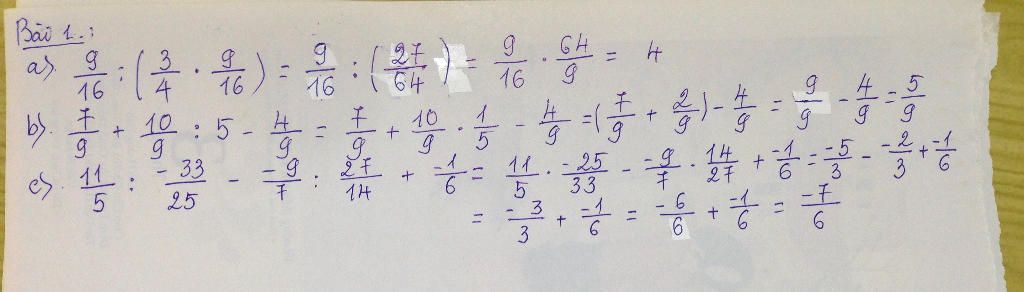 Bài 1.:
a). 9/16 : (3/4 . 9/16) = 9/16 : (27/64) = 9/16 . 64/9 = 4
b). 7/9 + 10/9 : 5 - 4/9 = 7/9 + 10/9 . 1/5 - 4/9 = (7/9 + 2/9) - 4/9 = 9/9 - 4/9 = 5/9
c). 11/5 : -33/25 - -9/7 : 27/14 + -1/6 = 11/5 . -25/33 - -9/7 . 14/27 + -1/6 = -5/3 - -2/3 + -1/6
= -3/3 + -1/6 = -6/6 + -1/6 = -7/6